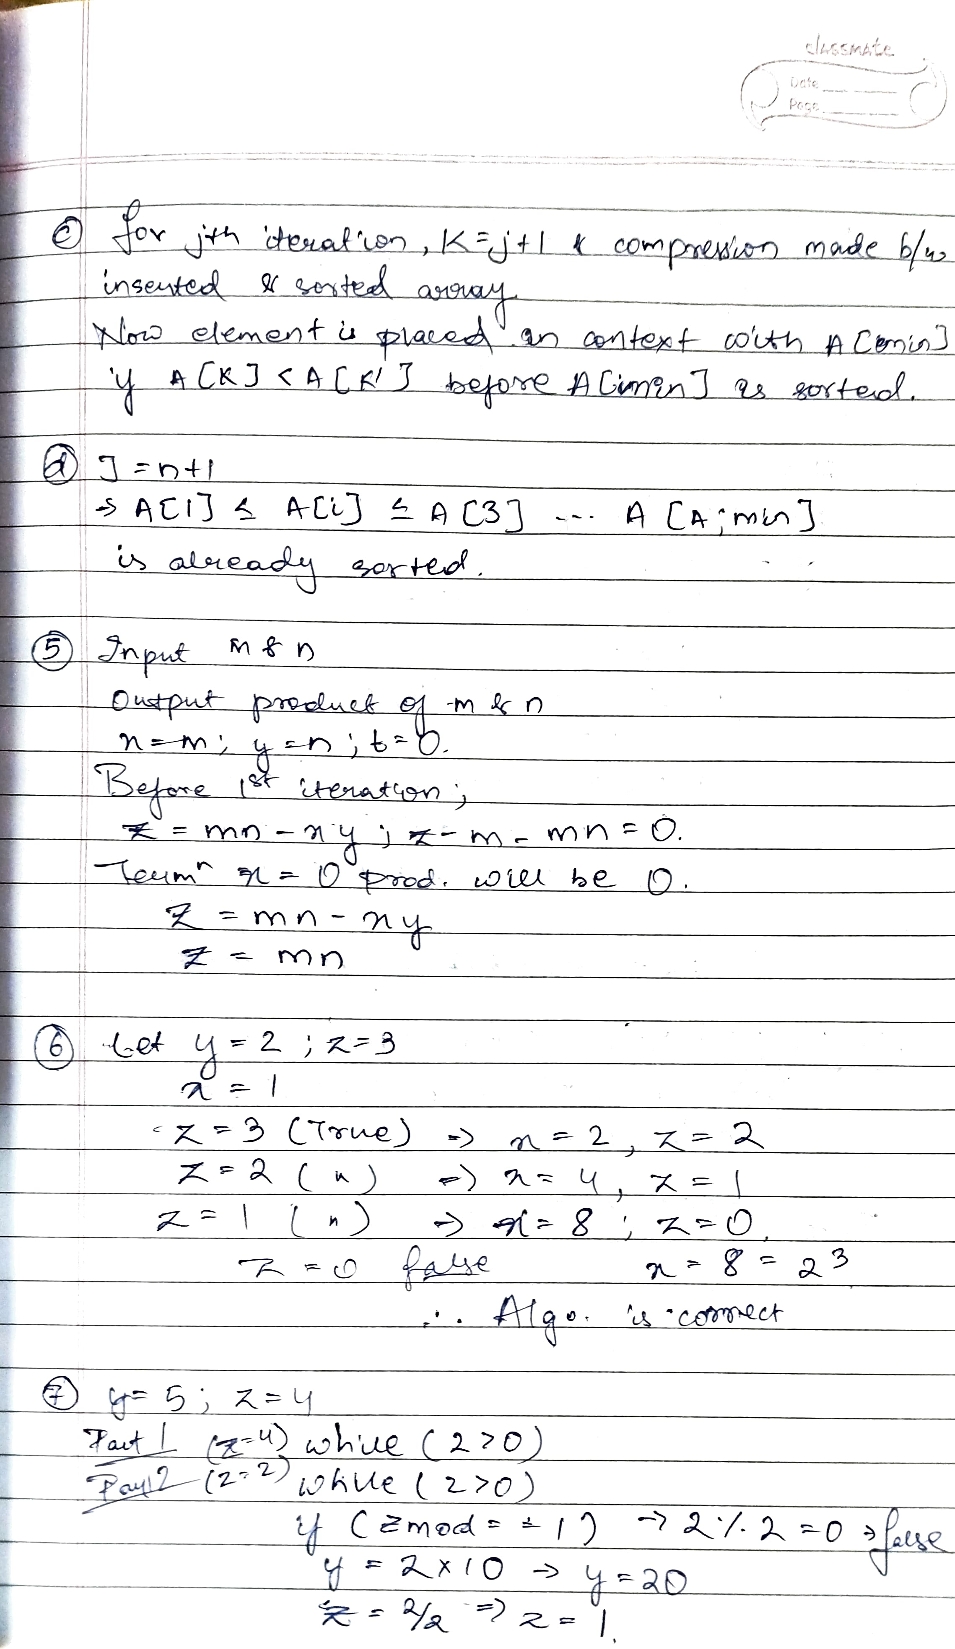 classmate
Date
Page
(c) for jth iteration, K=j+1 & compression made b/w
inserted & sorted array.
Now element is placed in context with A[min]
if A[K] < A[K'] before A[imin] as sorted.
(d) J = n+1
⇒ A[1] ≤ A[i] ≤ A[3] --- A [A;min]
is already sorted.
(5) Input m & n
Output product of m & n
x=m; y=n; t=0.
Before 1st iteration;
z = mn - xy; z - m - mn = 0.
Termn x = 0 prod. will be 0.
z = mn - xy
z = mn
(6) Let y = 2 ; z = 3
x = 1
z = 3 (True) => x = 2, z = 2
z = 2 ( " ) => x = 4, z = 1
z = 1 ( " ) → x = 8 ; z = 0,
z = 0 false x = 8 = 2^3
∴ Algo. is correct
(7) y = 5; z = 4
Part 1 (z=4) while (2>0)
Part 2 (z=2) while (2>0)
if (zmod = ± 1) → 2 % 2 = 0 → false
y = 2 x 10 → y = 20
z = 2/2 => z = 1.